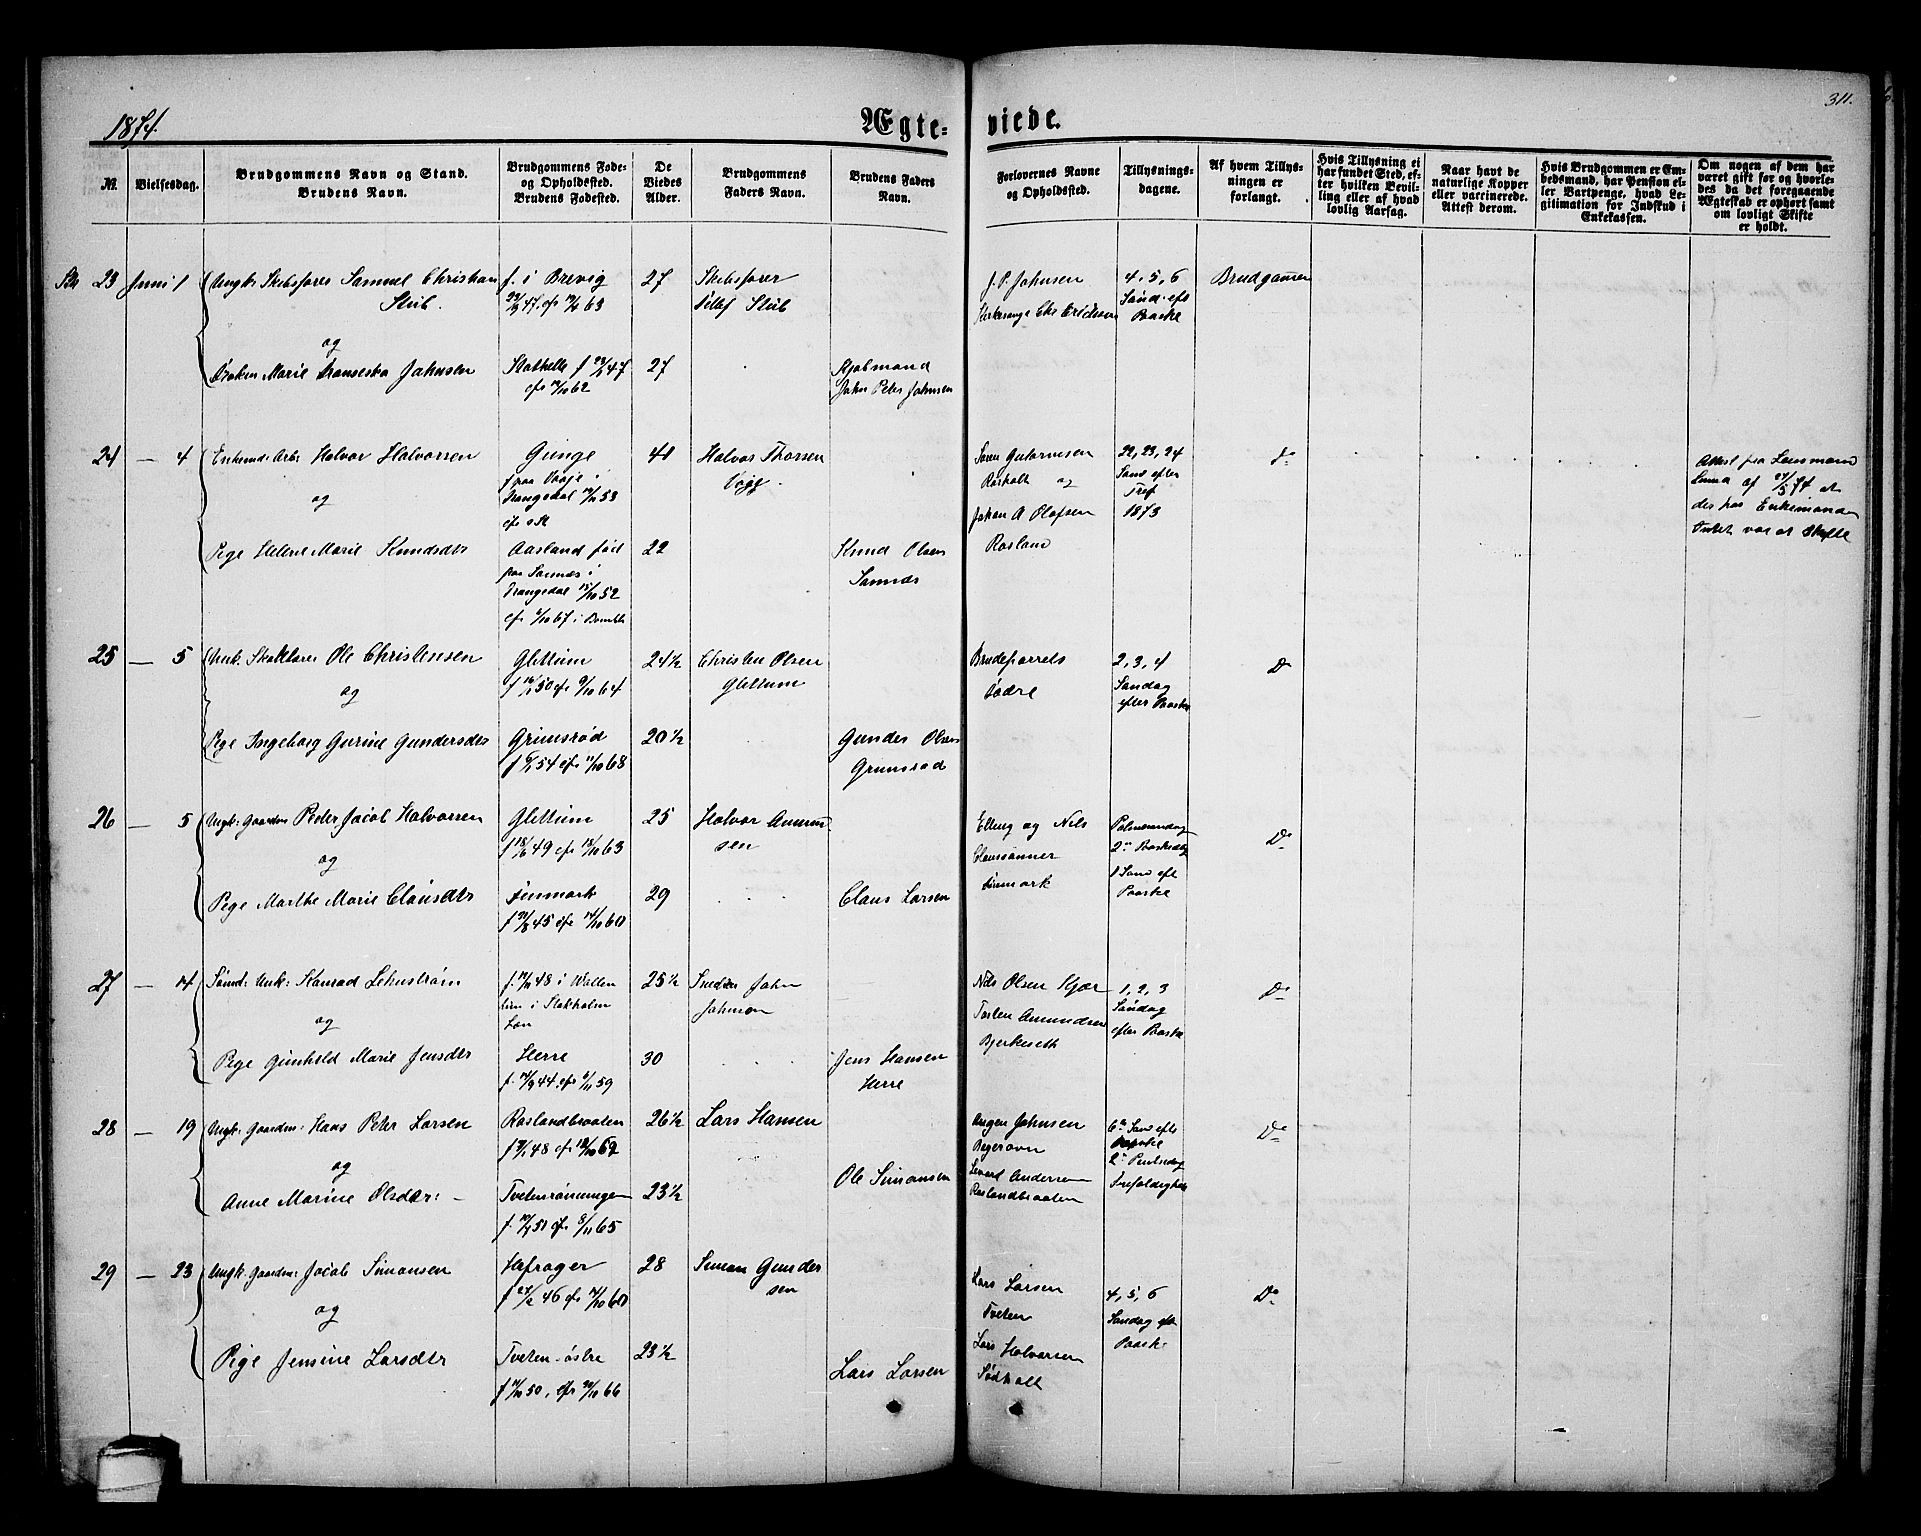 1874.
Ægte-
viede.
311.
№.
Vielsesdag.
Brudgommens Navn og Stand.
Brudens Navn.
Brudgommens Føde-
og Opholdssted.
Brudens Fødested.
De
Viedes
Alder.
Brudgommens
Faders Navn.
Brudens Faders
Navn.
Forlovernes Navne
og Opholdssted.
Tillysnings-
dagene.
Af hvem Tillys-
ningen er
forlangt.
Hvis Tillysning ei
har fundet Sted, ef-
ter hvilken Bevil-
ling eller af hvad
lovlig Aarsag.
Naar havt de
naturlige Kopper
eller vaccinerede.
Attest derom.
Hvis Brudgommen er Em-
bedsmand, har Pension el-
ler Vartpenge, hvad Le-
gitimation for Indskud i
Enkekassen.
Om nogen af dem har
været gift før og hvorle-
des da det foregaaende
Ægteskab er ophørt samt
om lovligt Skifte
er holdt.
23 Juni 1 Ungk: Skibsfører Samuel Christian
Stub.
og
Marie Franseska Johnsen
f. i Brevig
47. cfr 63
Stathelle f 47
cfr 62
27
27
Skibsfører
Detlef Stub
Kjøbmand
John Peter Johnsen
J. P. Johnsen
Chr Eriksen
4, 5, 6
Sønd. eft
Paaske
Brudgommen
24 — 4 Enkemd: Arb: Halvor Halvorsen
og
Pige Helene Marie Knudsdtr
Gunge
paa Vraje i
Drangedal 53
Aasland fød
paa Sannes i
Drangedal 15/10 52
cfr 67 i Bamble
41
22
Halvor Thorsen
Knud Olsen
Sannes
Søren
Rørholt og
Johan A Olafsen
Rosland
22, 23, 24
Sønd efter
Tref
1873
Do
Attest fra Lensmand
af 74 at
der hos Enkemanden
Intet var at Skifte
25 — 5 Unk: Ole Christensen
og
Pige Ingeborg Gurine Gundersdtr
Glittum
f 50 cfr 9/10 64
Grimsrød
f 54 cfr 11/10 68
24½
20½
Christen Olsen
Glittum
Gunder Olsen
Grimsrød
Brudeparrets
Fædre
2, 3, 4
Søndag
efter Paaske
Do
26 — 5 Ungk: Gaardm: Peder Jacob Halvorsen
og
Pige Marthe Marie Clausdtr
Glittum
f 18/6 49 cfr 18/10 63
Finmark
f 45 cfr 14/10 60
25
29
Halvor Amund
sen
Claus Larsen
Elling og Nils
Claussønner
Finmark
Palmesøndag
2den Paaskedag
1 Sønd eft
Paaske
Do
27 — 14 Smed: Unk: Konrad Lehnstrøm
og
Pige Gunhild Marie Jensdtr
f. 48 i Wallen
i Stokholm
Len
Herre
f. 44. cfr 59
25½
30
Smeden John
Johnson
Jens Hansen
Herre
Nils Olsen Kjær
Torsten Amundsen
Bjerkeseth
1, 2, 3
Søndag
efter Paaske
Do
28 — 19 Ungk: Gaardm: Hans Peter Larsen
og
Anne Marine Olsdtr: —
Roslandbraaten
f 48 cfr 62
Tvetenrønningen
f. 50 cfr 65
26½
23½
Lars Hansen
Ole Simonsen
Jørgen Johnsen
Andersen
Roslandbraaten
6te Sønd eft
Paaske
2den Pintsedag
Trefoldighed
Do
29 — 23 Ungk: Gaardm: Jacob Simonsen
og
Pige Jensine Larsdtr
Hafsager
f 46 cfr 60
Tveten østre
f 50, cfr 66
28
23½
Simon Gunder
sen
Lars Larsen
Lars Larsen
Tveten
Lars Halvorsen
Rødholt
4, 5, 6
Søndag eft
Paaske
Do